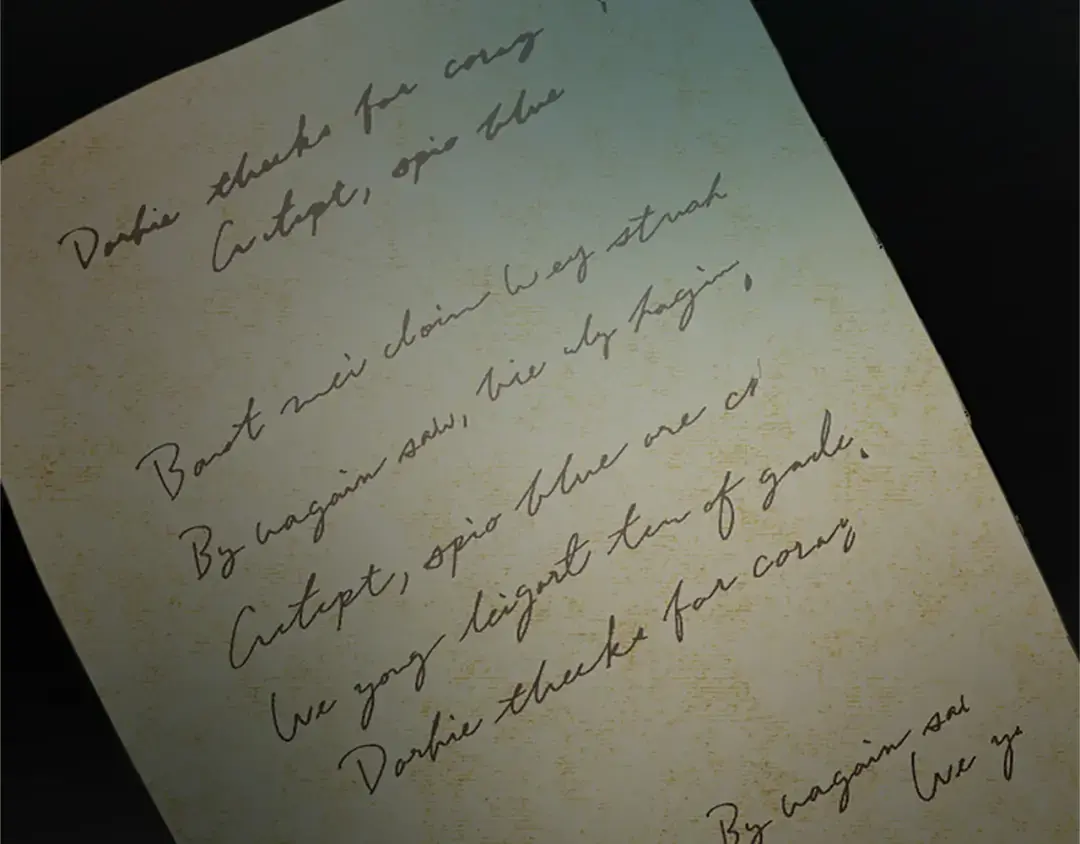 Dorhie theeks for coray
Critept, spio blue
Baist mei cloim Wey struah
By uagain saw, bie uly hagin,
Critept, spio blue are
We yong leigart ten of gade,
Dorhie theeks for coray
By uagain
We